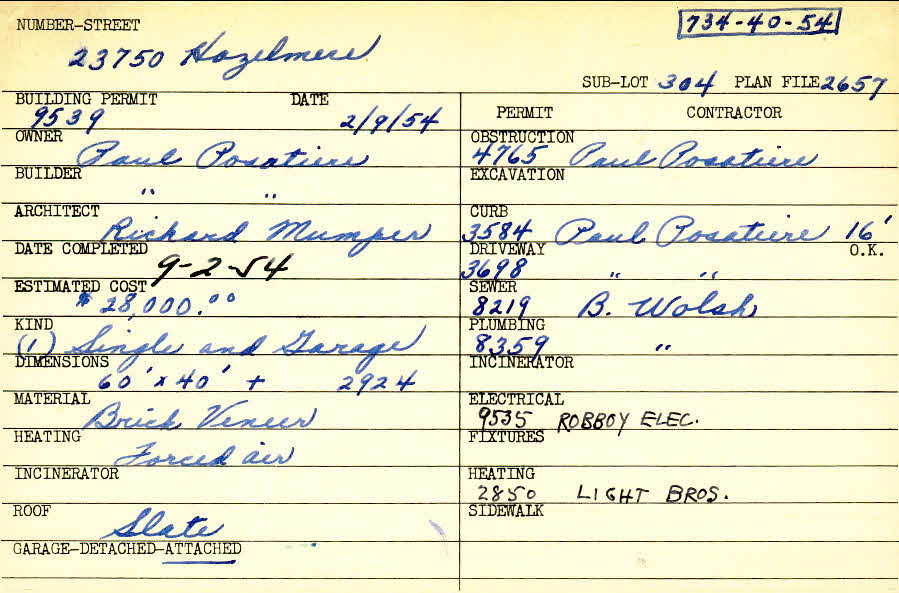 NUMBER-STREET
734-40-54
23750 Hazelmere
SUB-LOT 304 PLAN FILE 2657
BUILDING PERMIT DATE
9539 2/9/54
PERMIT CONTRACTOR
OWNER
Paul Posatiere
OBSTRUCTION
4765 Paul Posatiere
BUILDER
" "
EXCAVATION
ARCHITECT
Richard Mumper
CURB
3584 Paul Posatiere 16'
O.K.
DATE COMPLETED
9-2-54
DRIVEWAY
3698 " "
ESTIMATED COST
$ 28,000.00
SEWER
8219 B. Walsh
KIND
(1) Single and Garage
PLUMBING
8359 "
DIMENSIONS
60' x 40' + 2924
INCINERATOR
MATERIAL
Brick Veneer
ELECTRICAL
9535 ROBBOY ELEC.
HEATING
Forced air
FIXTURES
INCINERATOR
HEATING
2850 LIGHT BROS.
ROOF
Slate
SIDEWALK
GARAGE-DETACHED-ATTACHED